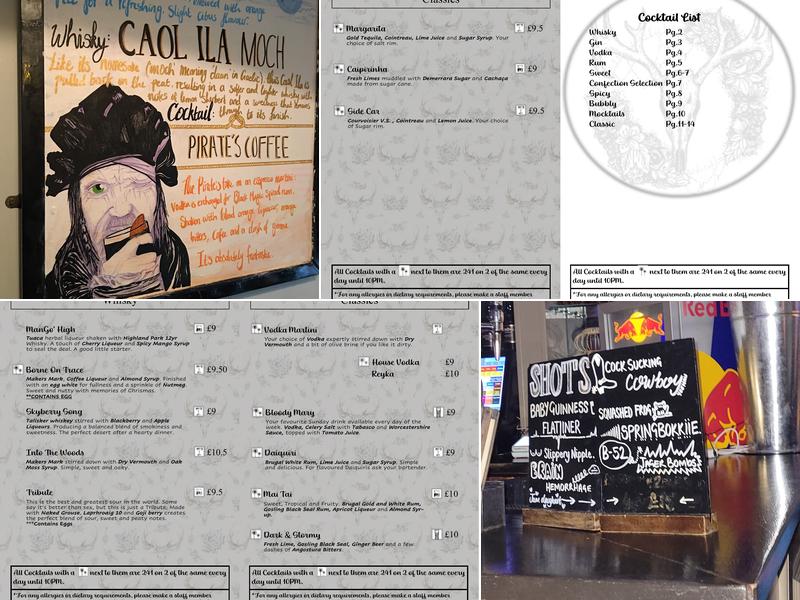 for a refreshing. Slight citrus flavour.
Whisky: CAOL ILA MOCH
Like its namesake (moch meaning dawn in Gaelic) this Caol Ila is
pulled back on the peat. resulting in a softer and lighter whisky with
notes of lemon
Cocktail:
PIRATE'S COFFEE
The Pirates take on an espresso martini:
Vodka is exchanged for Black Magic Spiced rum,
Shaken with blood orange liqueur, orange
bitters, Coffee and a dash of gomme.
It's absolutely fantastic.
Classics
Margarita £9.5
Gold Tequila, Cointreau, Lime Juice and Sugar Syrup. Your
choice of salt rim.
Caipirinha £9
Fresh Limes muddled with Demerrara Sugar and Cachaça
made from sugar cane.
Side Car £9.5
Courvoisier V.S., Cointreau and Lemon Juice. Your choice
of Sugar rim.
All Cocktails with a next to them are 241 on 2 of the same every
day until 10PM.
*For any allergies or dietary requirements, please make a staff member
Cocktail List
Whisky Pg.2
Gin Pg.3
Vodka Pg.4
Rum Pg.5
Sweet Pg.6-7
Confection Selection Pg.7
Spicy Pg.8
Bubbly Pg.9
Mocktails Pg.10
Classic Pg.11-14
All Cocktails with a next to them are 241 on 2 of the same every
day until 10PM.
*For any allergies or dietary requirements, please make a staff member
Whisky
ManGo' High £9
Tuaca herbal liqueur shaken with Highland Park 12yr
Whisky. A touch of Cherry Liqueur and Spicy Mango Syrup
to seal the deal. A good little starter.
Borne On Trace £9.50
Makers Mark, Coffee Liqueur and Almond Syrup. Finished
with an egg white for fullness and a sprinkle of Nutmeg.
Sweet and nutty with memories of Chrismas.
**CONTAINS EGG
Skyberry Song £9
Talisker whiskey stirred with Blackberry and Apple
Liqueurs. Producing a balanced blend of smokiness and
sweetness. The perfect desert after a hearty dinner.
Into The Woods £10.5
Makers Mark stirred down with Dry Vermouth and Oak
Moss Syrup. Simple, sweet and oaky.
Tribute £9.5
This is the best and greatest sour in the world. Some
say it's better than sex, but this is just a Tribute. Made
with Naked Grouse, Laphroaig 10 and Goji berry creates
the perfect blend of sour, sweet and peaty notes.
***Contains Eggs
All Cocktails with a next to them are 241 on 2 of the same every
day until 10PM.
*For any allergies or dietary requirements, please make a staff member
Classics
Vodka Martini
Your choice of Vodka expertly stirred down with Dry
Vermouth and a bit of olive brine if you like it dirty.
House Vodka £9
Reyka £10
Bloody Mary £9
Your favourite Sunday drink available every day of the
week. Vodka, Celery Salt with Tabasco and Worcestershire
Sauce, topped with Tomato Juice.
Daiquiri £9
Brugal White Rum, Lime Juice and Sugar Syrup. Simple
and delicious. For flavoured Daiquiris ask your bartender.
Mai Tai £10
Sweet, Tropical and Fruity. Brugal Gold and White Rum,
Gosling Black Seal Rum, Apricot Liqueur and Almond Syr-
up.
Dark & Stormy £10
Fresh Lime, Gosling Black Seal, Ginger Beer and a few
dashes of Angostura Bitters.
All Cocktails with a next to them are 241 on 2 of the same every
day until 10PM.
*For any allergies or dietary requirements, please make a staff member
Red B
Red Bull
SHOTS
BABY GUINNESS
FLATLINER
Slippery Nipple.
BRAIN
HEMORRHAGE
Jam doughnut
COCK SUCKING
Cowboy
SQUASHED FROG
SPRINGBOKKIE
B-52
JAGER BOMBS